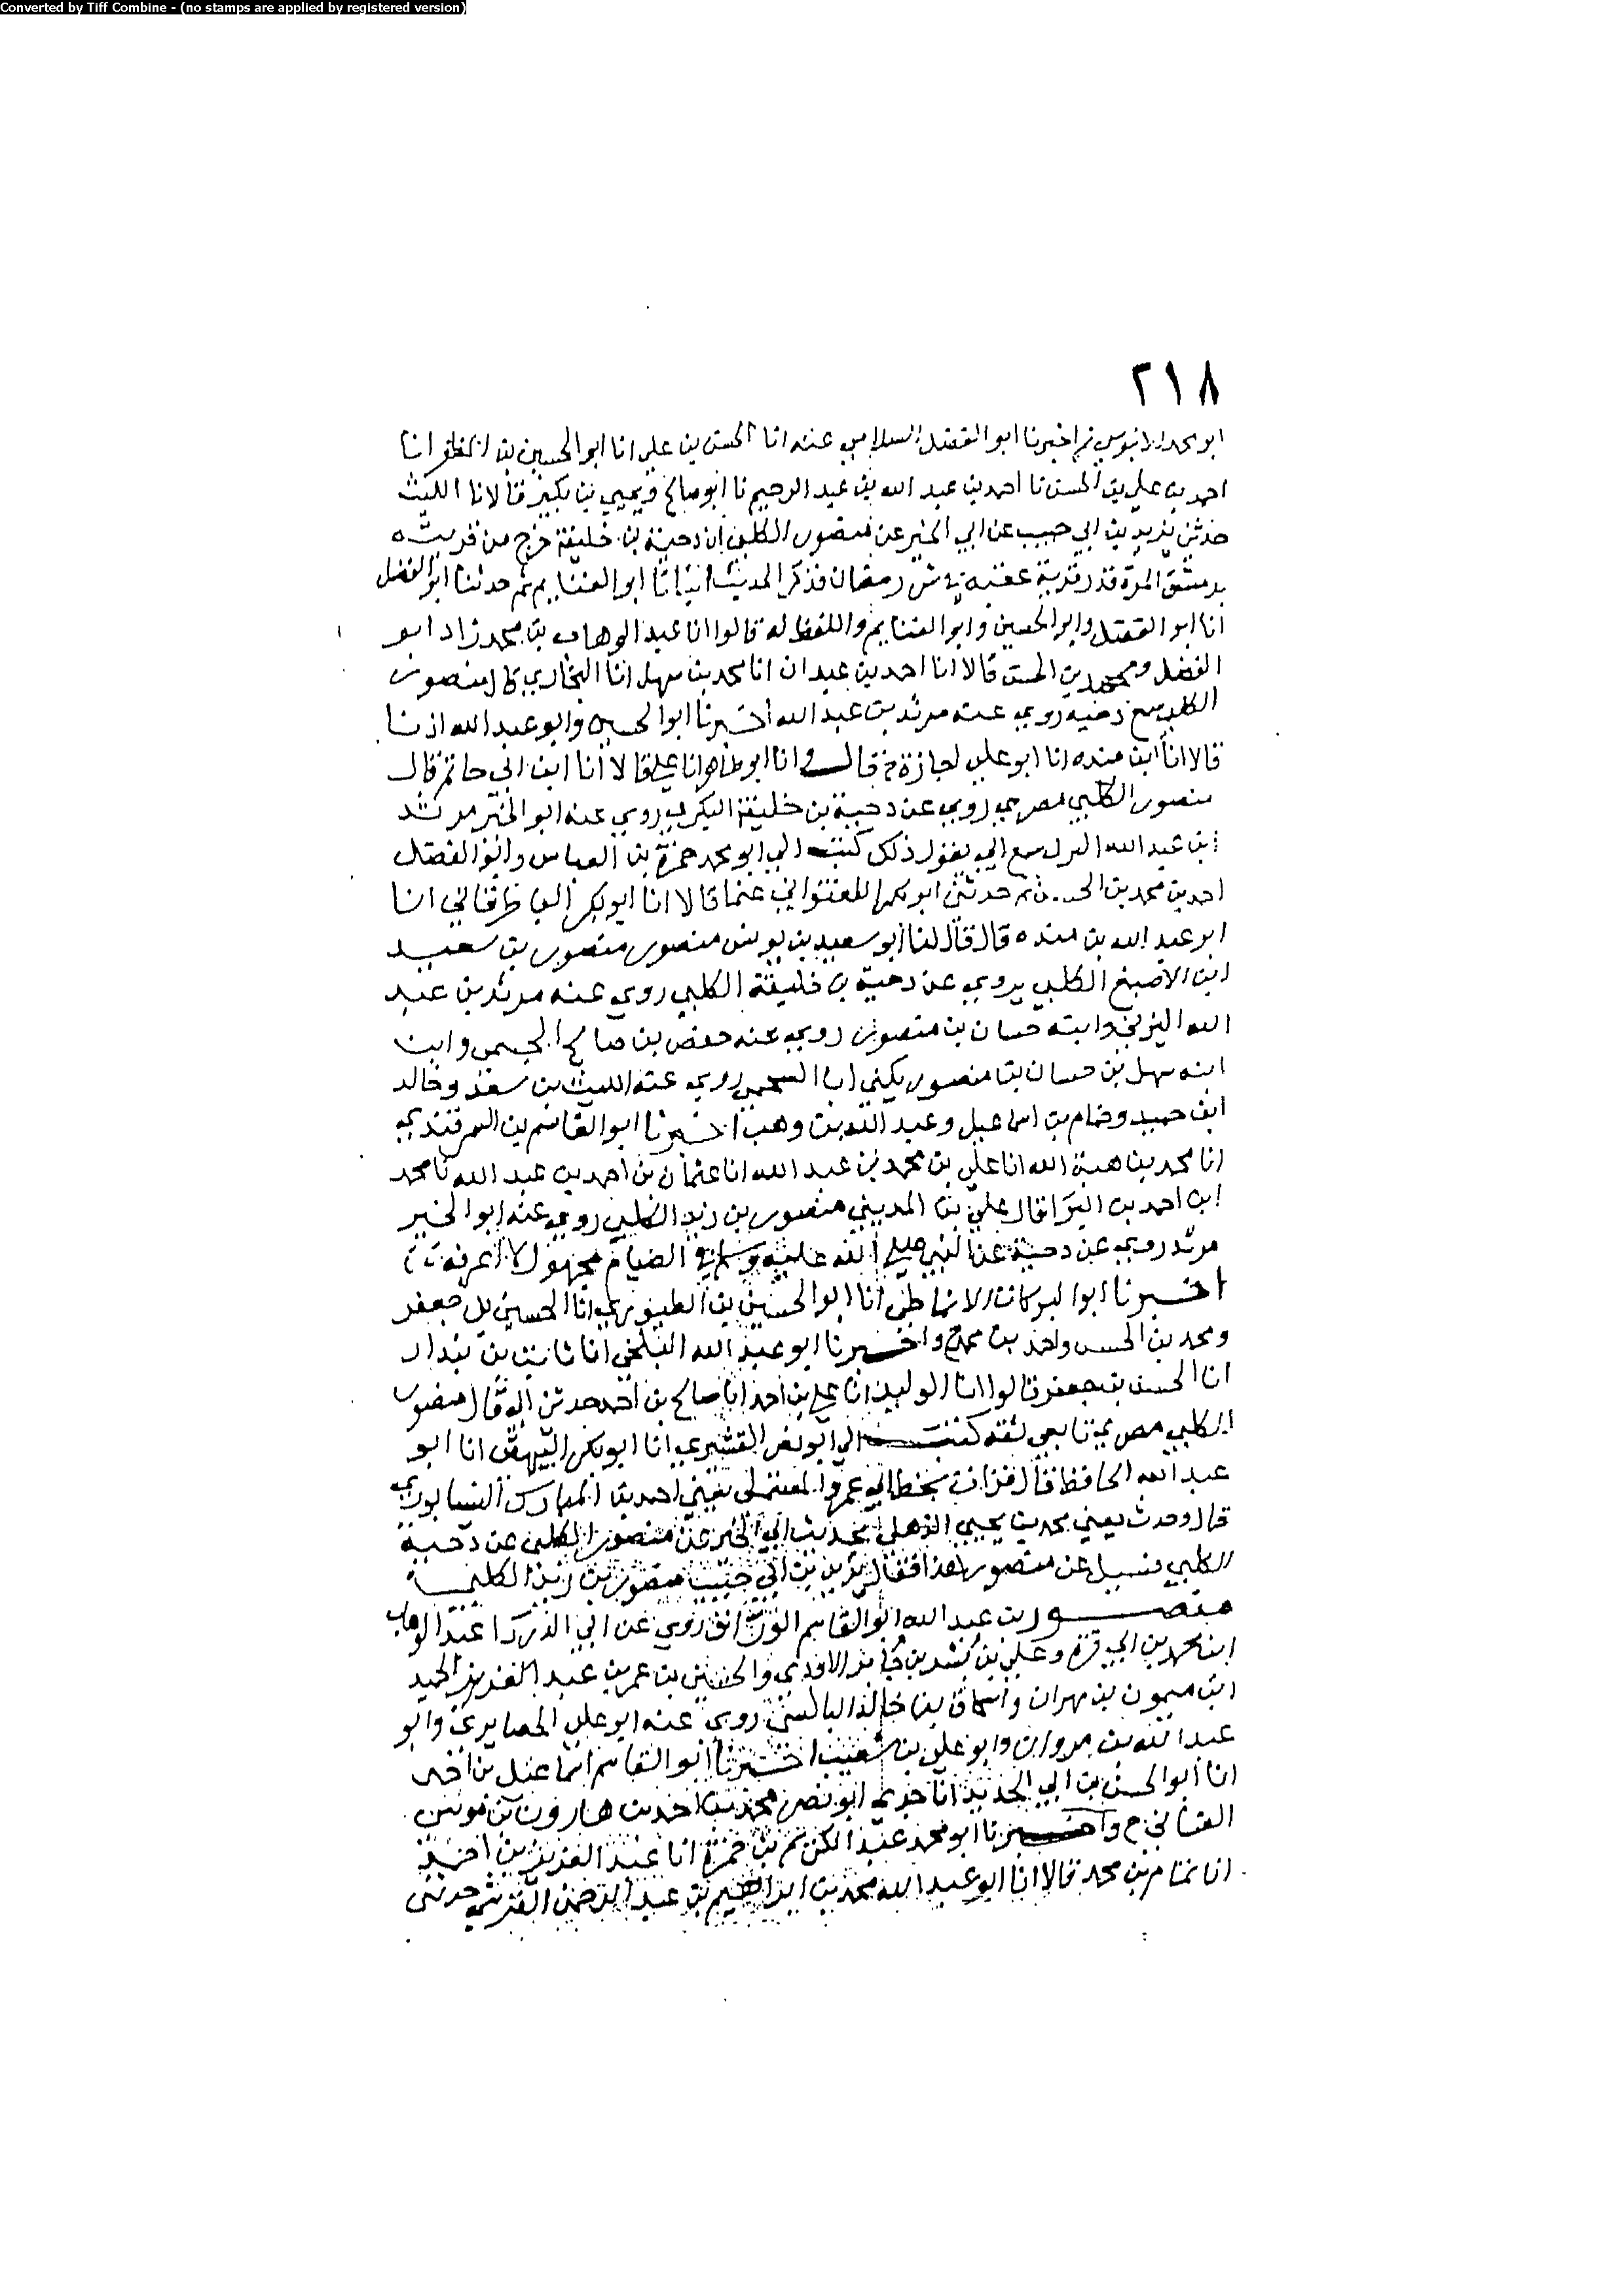 Converted by Tiff Combine - (no stamps are applied by registered version)
٢١٨
ابو محمد الابنوسي ثم اخبرنا ابو الفضل السلامي عنه انا الحسن بن علي انا ابو الحسين بن المظفر انا
احمد بن علي بن الحسن نا احمد بن عبد الله بن عبد الرحيم نا ابو صالح ويحيى بن بكير قالا نا الليث
حدثني يزيد بن ابي حبيب عن ابي الخير عن منصور الكلبي ان دحية بن خليفة خرج من قريته
بدمشق المزة قدر قرية عقبة في رمضان فذكر الحديث انبانا ابو الغنايم ثم حدثنا ابو الفضل
انا ابو الفضل وابو الحسين وابو الغنايم واللفظ له قالوا انا عبد الوهاب بن محمد زاد ابو
الفضل ومحمد بن الحسن قالا انا احمد بن عبدان انا محمد بن سهل انا البخاري قال منصور
الكلبي سمع دحية روى عنه مرثد بن عبد الله اخبرنا ابو الحسين وابو عبد الله اذنا
قالا انا ابن منده انا ابو علي اجازة ح قال وانا ابو طاهر انا علي قالا انا ابن ابي حاتم قال
منصور الكلبي مصري روى عن دحية بن خليفة البكري روى عنه ابو الخير مرثد
ابن عبد الله سمع ابي يقول ذلك كتب الي ابو محمد حمزة بن العباس وابو الفضل
احمد بن محمد بن الحسن ثم حدثني ابو بكر اللفتواني عنهما قالا انا ابو بكر الباطرقاني انا
ابو عبد الله بن منده قال قال لنا ابو سعيد بن يونس منصور منصور بن سعيد
ابن الاصبغ الكلبي يروي عن دحية بن خليفة الكلبي روى عنه مرثد بن عبد
الله اليزني وابنه حسان بن منصور روى عنه حفص بن صالح وابن
ابنه سهل بن حسان بن منصور يكنى ابا السحمي روى عنه الليث بن سعد وخالد
ابن حميد وضمام بن اسماعيل وعبد الله بن وهب اخبرنا ابو القاسم بن السمرقندي
انا محمد بن هبة الله انا علي بن محمد بن عبد الله انا عثمان بن احمد بن عبد الله نا محمد
ابن احمد بن البرا قال علي بن المديني منصور بن زيد الكلبي روى عنه ابو الخير
مرثد روى عن دحية عن النبي صلى الله عليه وسلم في الصيام مجهول لا اعرفه
اخبرنا ابو البركات الانماطي انا ابو الحسين بن الطيوري انا الحسين بن جعفر
ومحمد بن الحسن واحمد بن محمد ح واخبرنا ابو عبد الله البلخي انا ثابت بن بندار
انا الحسين بن جعفر قالوا انا الوليد انا علي بن احمد انا صالح بن احمد حدثني ابي قال منصور
الكلبي مصري تابعي ثقة كتب الي ابو نصر القشيري انا ابو بكر البيهقي انا ابو
عبد الله الحافظ قال قرات بخط ابي عمرو المستملي يعني احمد بن المبارك النيسابوري
قال وحدث يعني محمد بن يحيى الذهلي بحديث ابي الخير عن منصور الكلبي عن دحية
الكلبي فسيل عن منصور هذا فقال يزيد بن ابي حبيب منصور بن زيد الكلبي
منصور بن عبد الله ابو القاسم الوراق روى عن ابي الدردا عبد الوهاب
ابن محمد بن ابي قرة وعلي بن الازدي والحسين بن عمر بن عبد العزيز الحميد
ابن ميمون بن مهران واسحاق بن خالد البالسي روى عنه ابو علي الحصايري وابو
عبد الله بن مروان وابو علي بن شعيب اخبرنا ابو القاسم اسماعيل بن احمد
انا ابو الحسن بن ابي الحديد انا جدي ابو نصر محمد بن احمد بن هارون بن موسى
الغساني ح واخبرنا ابو محمد عبد الكريم بن حمزة انا عبد العزيز بن احمد
انا تمام بن محمد قالا انا ابو عبد الله محمد بن ابراهيم بن عبد الرحمن القرشي حدثني